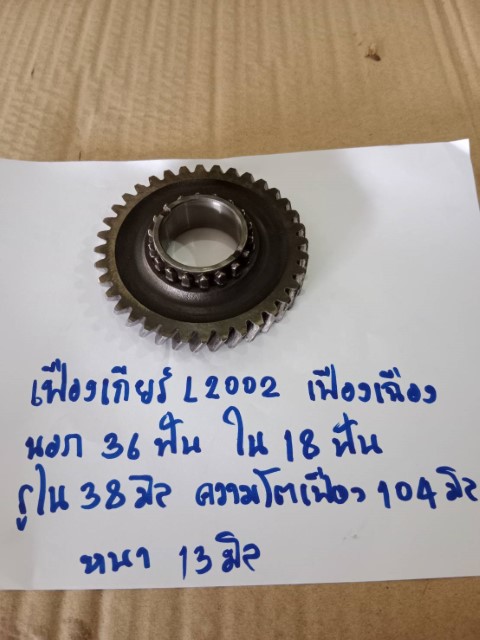 เฟืองเกียร์ L2002 เฟืองเฉียง
นอก 36 ฟัน ใน 18 ฟัน
รูใน 38 มิล ความโตเฟือง 104 มิล
หนา 13 มิล